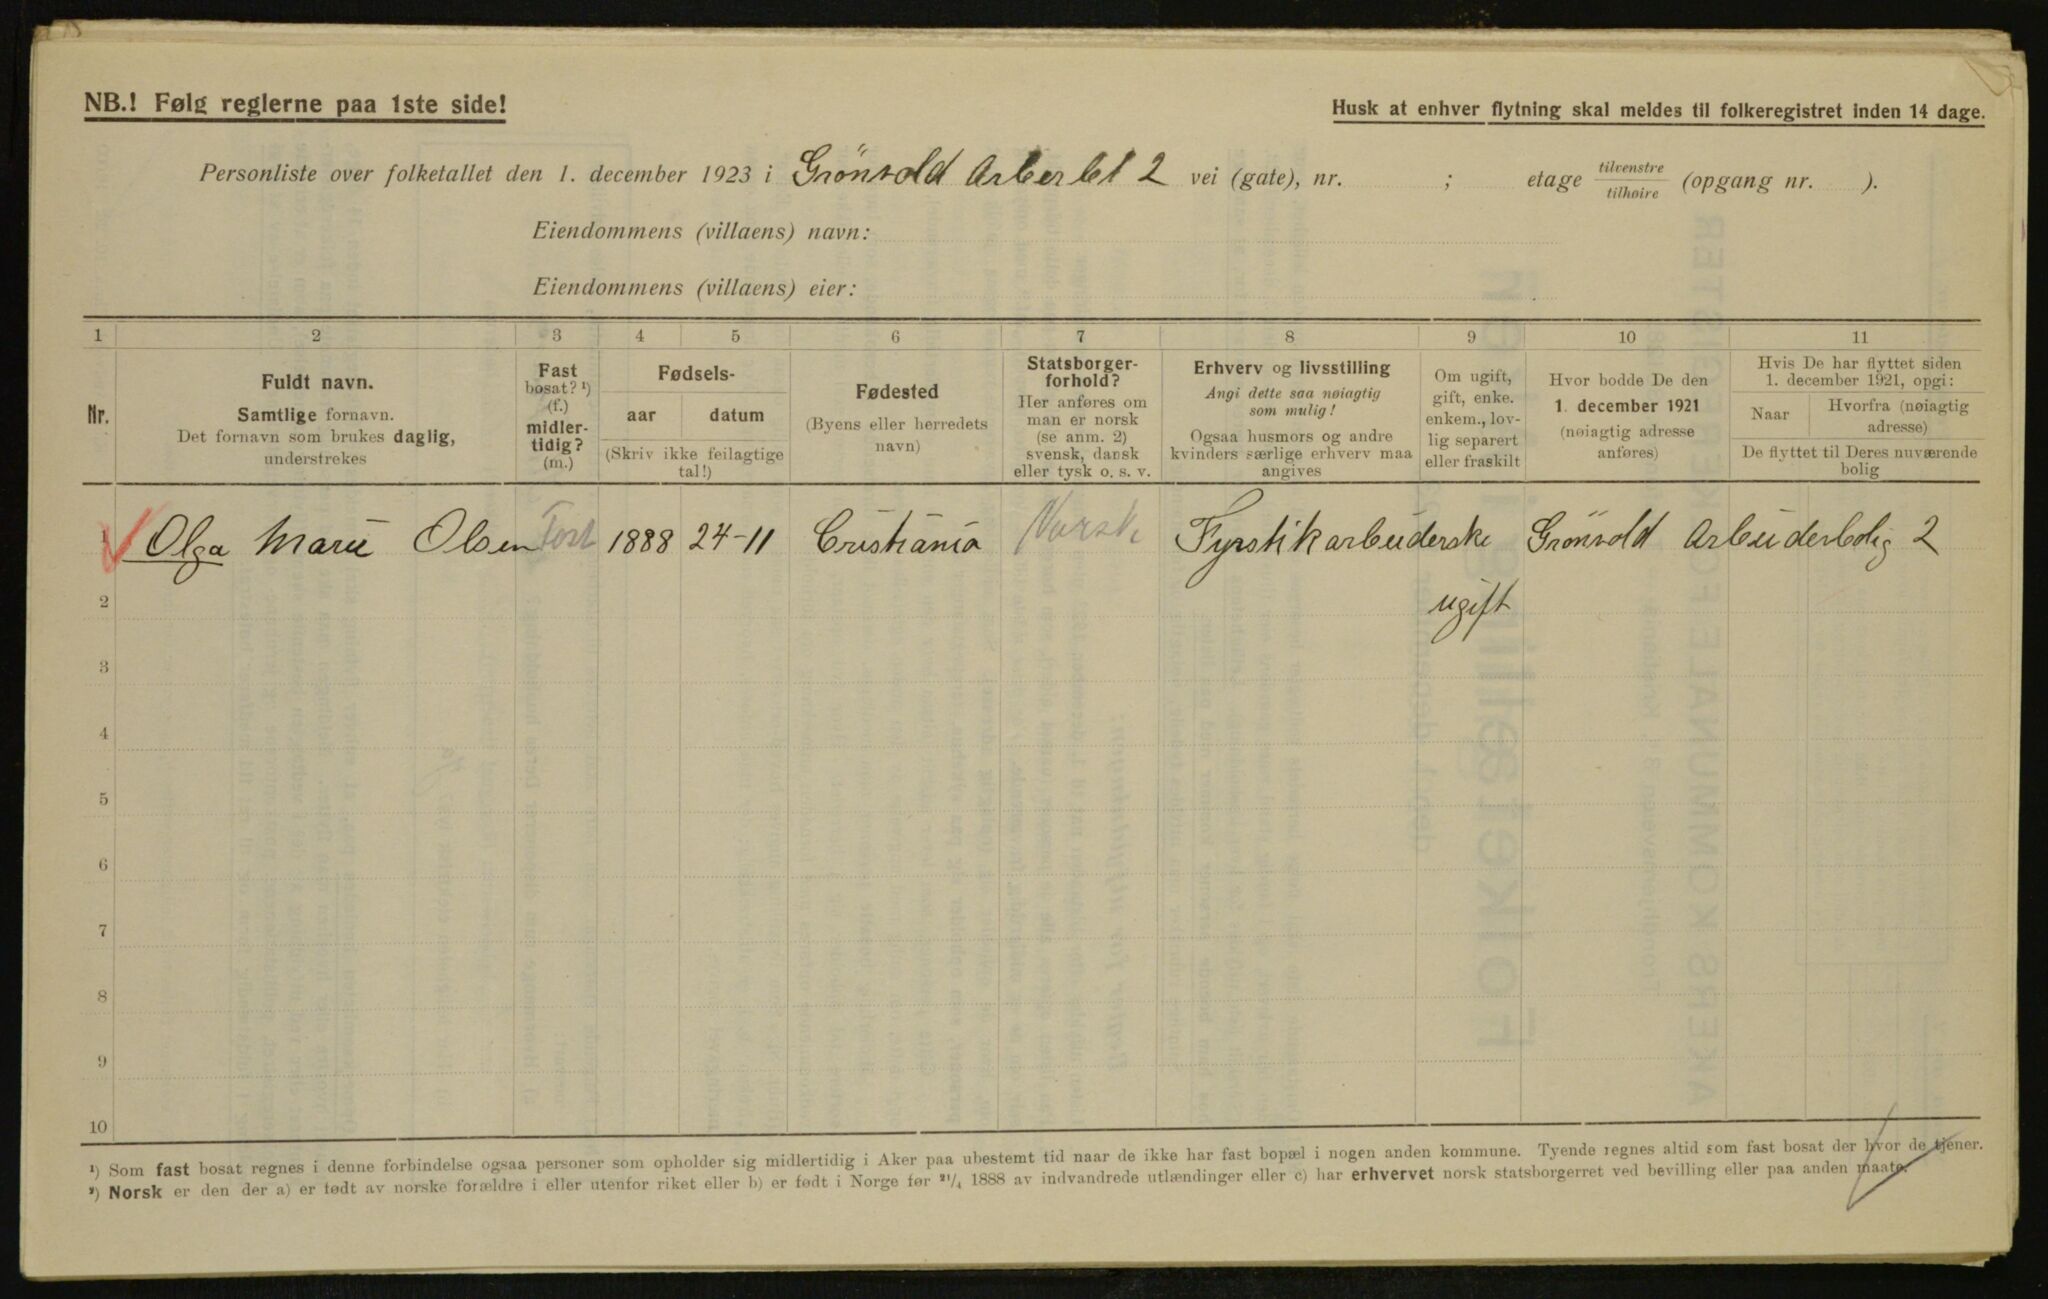 NB.! Følg reglerne paa 1ste side!
Husk at enhver flytning skal meldes til folkeregistret inden 14 dage.
Personliste over folketallet den 1. december 1923 i Grönvold Arberbl 2 vei (gate), nr. ; etage tilvenstre / tilhøire (opgang nr. ).
Eiendommens (villaens) navn:
Eiendommens (villaens) eier:
1 2 3 4 5 6 7 8 9 10 11
Nr.
Fuldt navn.
Samtlige fornavn.
Det fornavn som brukes daglig,
understrekes
Fast
bosat? ¹)
(f.)
midler-
tidig?
(m.)
Fødsels-
aar datum
(Skriv ikke feilagtige
tal!)
Fødested
(Byens eller herredets
navn)
Statsborger-
forhold?
Her anføres om
man er norsk
(se anm. 2)
svensk, dansk
eller tysk o. s. v.
Erhverv og livsstilling
Angi dette saa nøiagtig
som mulig!
Ogsaa husmors og andre
kvinders særlige erhverv maa
angives
Om ugift,
gift, enke.
enkem., lov-
lig separert
eller fraskilt
Hvor bodde De den
1. december 1921
(nøiagtig adresse
anføres)
Hvis De har flyttet siden
1. december 1921, opgi:
Naar
Hvorfra (nøiagtig
adresse)
De flyttet til Deres nuværende
bolig
1 Olga Marie Olsen Fast 1888 24-11 Cristiania Norsk Fyrstikarbeiderske Grönvold Arbeiderbolig 2
2 ugift
3
4
5
6
7
8
9
10
¹) Som fast bosat regnes i denne forbindelse ogsaa personer som opholder sig midlertidig i Aker paa ubestemt tid naar de ikke har fast bopæl i nogen anden kommune. Tyende regnes altid som fast bosat der hvor de tjener.
²) Norsk er den der a) er født av norske forældre i eller utenfor riket eller b) er født i Norge før ²¹/₄ 1888 av indvandrede utlændinger eller c) har erhvervet norsk statsborgerret ved bevilling eller paa anden maate.